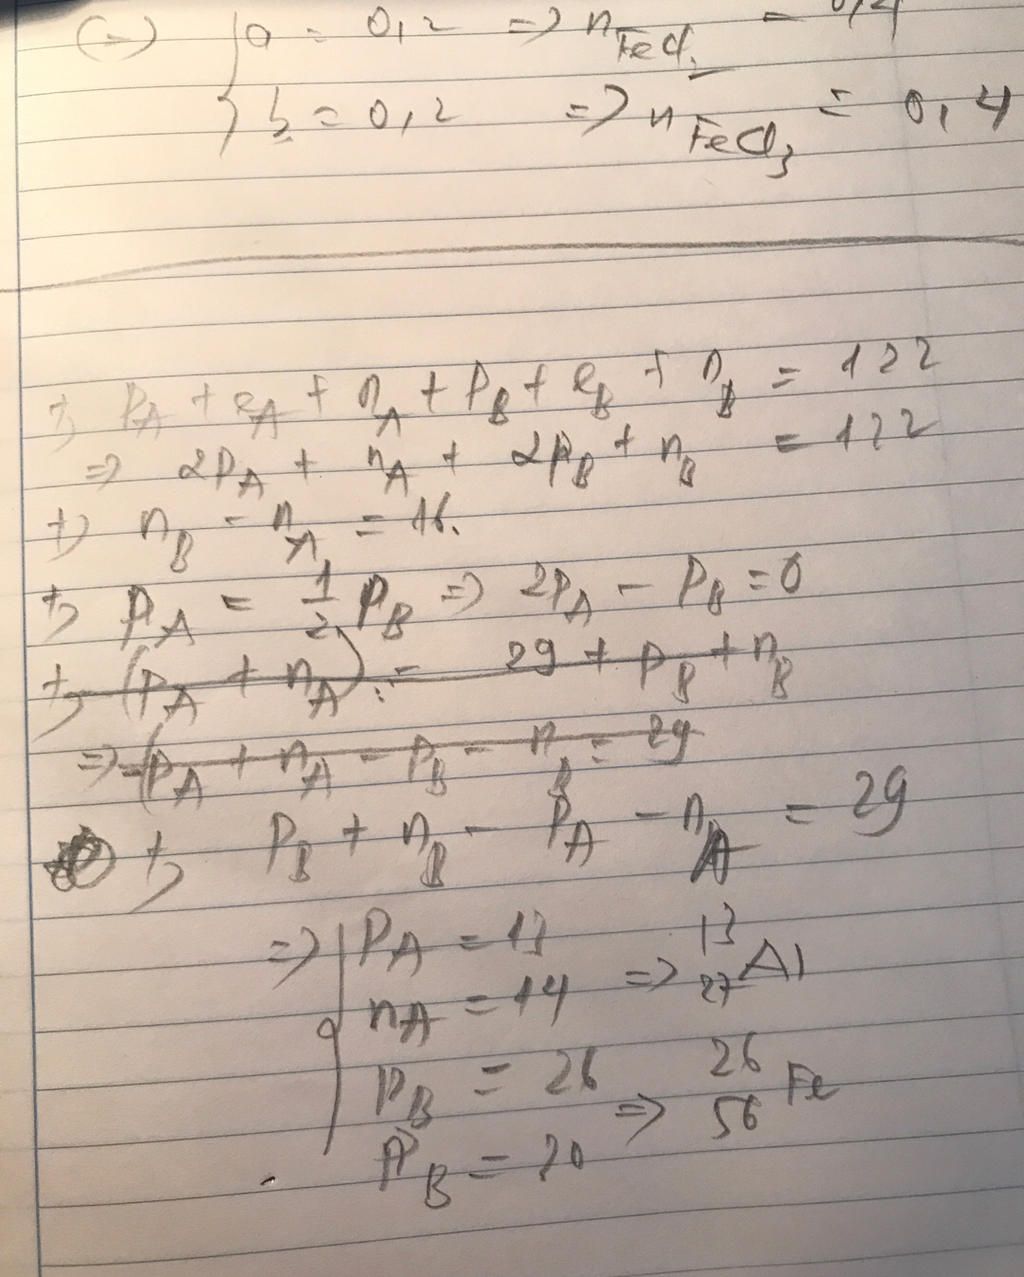 (=) { a = 0,2 => n FeCl₂ = 0,4
b = 0,2 => n FeCl₃ = 0,4
+) PA + eA + nA + PB + eB + nB = 122
=> 2PA + nA + 2PB + nB = 122
+) nB - nA = 16.
+) PA = 1/2 PB => 2PA - PB = 0
+) (PA + nA) = 29 + PB + nB
=> (PA + nA - PB - nB = 29
+) PB + nB - PA - nA = 29
=> { PA = 13 13
nA = 14 => 27 Al
PB = 26 26
=> 56 Fe
B = 30